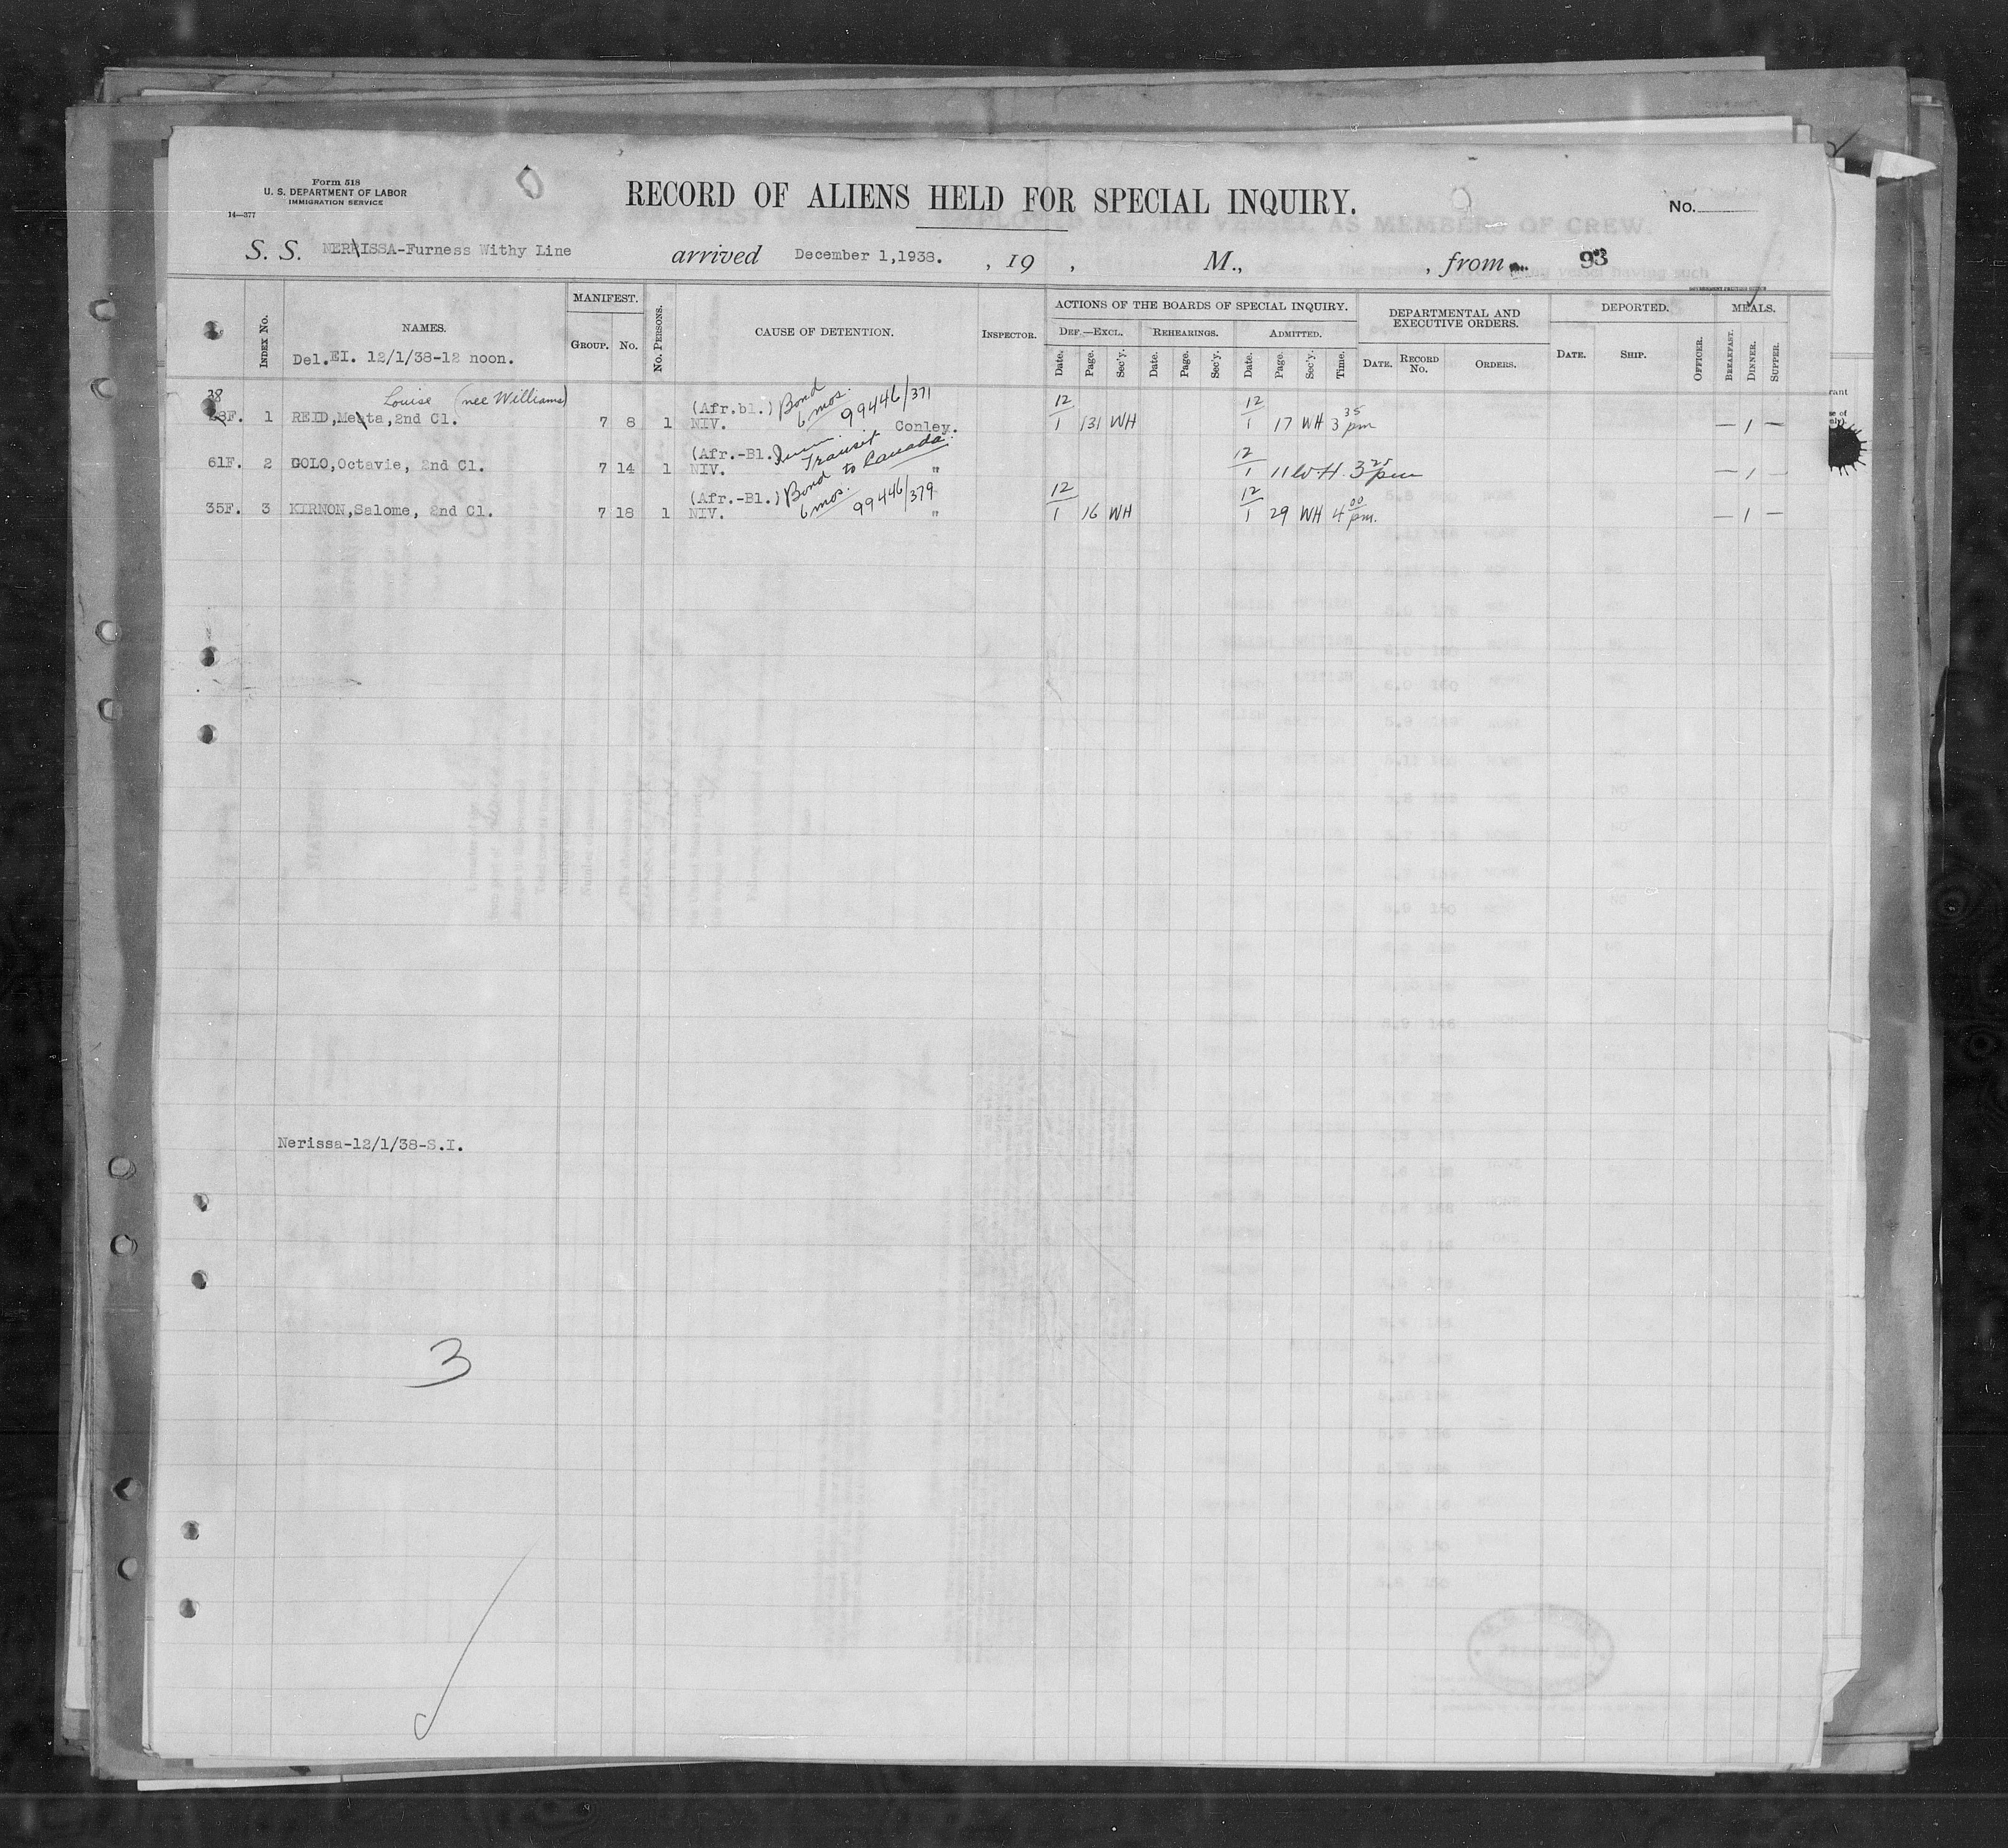 Form 518
U. S. DEPARTMENT OF LABOR
IMMIGRATION SERVICE
14—377
RECORD OF ALIENS HELD FOR SPECIAL INQUIRY.
No.
S. S. NERRISSA-Furness Withy Line arrived December 1,1938. , 19 , M., , from 93
INDEX No. NAMES. MANIFEST. GROUP. No. No. PERSONS. CAUSE OF DETENTION. INSPECTOR. ACTIONS OF THE BOARDS OF SPECIAL INQUIRY. DEPARTMENTAL AND EXECUTIVE ORDERS. DEPORTED. MEALS.
DEF.—EXCL. REHEARINGS. ADMITTED.
Date. Page. Sec'y. Date. Page. Sec'y. Date. Page. Sec'y. Time. DATE. RECORD No. ORDERS. DATE. SHIP. OFFICER. BREAKFAST. DINNER. SUPPER.
Del.EI. 12/1/38-12 noon.
38 Louise (nee Williams) (Afr.bl.) Bond 6 mos. 99446/371
F. 1 REID, ,2nd Cl. 7 8 1 NIV. Conley. 12/1 131 WH 12/1 17 WH 3 35 pm — 1 —
(Afr.-Bl.) Transit to Canada.
61F. 2 GOLO,Octavie, 2nd Cl. 7 14 1 NIV. " 12/1 11 W.H. 3 25 pm — 1 —
(Afr.-Bl.) Bond 6 mos. 99446/379
35F. 3 KIRNON,Salome, 2nd Cl. 7 18 1 NIV. " 12/1 16 WH 12/1 29 WH 4 00 pm. — 1 —
Nerissa-12/1/38-S.I.
3